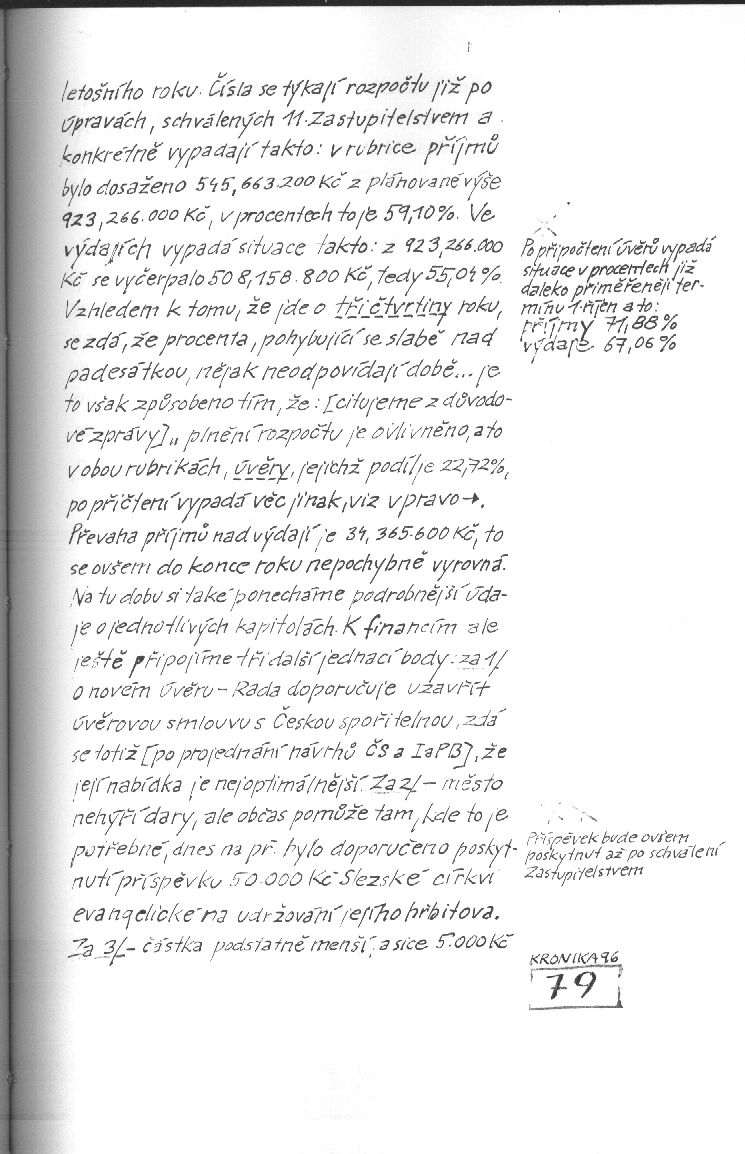 letošního roku. Čísla se týkají rozpočtu již po
úpravách, schválených 11. Zastupitelstvem a
konkrétně vypadají takto: v rubrice příjmů
bylo dosaženo 545,663.200 Kč z plánované výše
923,266.000 Kč, v procentech to je 59,10%. Ve
výdajích vypadá situace takto: z 923,266.000
Kč se vyčerpalo 508,158.800 Kč, tedy 55,04%.
Vzhledem k tomu, že jde o tři čtvrtiny roku,
se zdá, že procenta, pohybující se slabě nad
padesátkou, nějak neodpovídají době... je
to však způsobeno tím, že: [citujeme z důvodo-
vé zprávy] „plnění rozpočtu je ovlivněno, a to
v obou rubrikách, úvěry, jejichž podíl je 22,72%,
po přičtení vypadá věc jinak, viz vpravo→.
Převaha příjmů nad výdaji je 34,365.600 Kč, to
se ovšem do konce roku nepochybně vyrovná.
Na tu dobu si také ponecháme podrobnější úda-
je o jednotlivých kapitolách. K financím ale
ještě připojíme tři další jednací body: za 1/
o novém úvěru – Rada doporučuje uzavřít
úvěrovou smlouvu s Českou spořitelnou, zdá
se totiž [po projednání návrhů ČS a IaPB], že
její nabídka je nejoptimálnější. Za 2/ – město
nehýří dary, ale občas pomůže tam, kde to je
potřebné, dnes na př. bylo doporučeno poskyt-
nutí příspěvku 50.000 Kč Slezské církvi
evangelické na udržování jejího hřbitova.
Za 3/ – částka podstatně menší, a sice 5.000 Kč
Po připočtení úvěrů vypadá
situace v procentech již
daleko přiměřeněji ter-
mínu 1. říjen a to:
příjmy 71,88%
výdaje 67,06%
Příspěvek bude ovšem
poskytnut až po schválení
Zastupitelstvem
KRONIKA 96
79